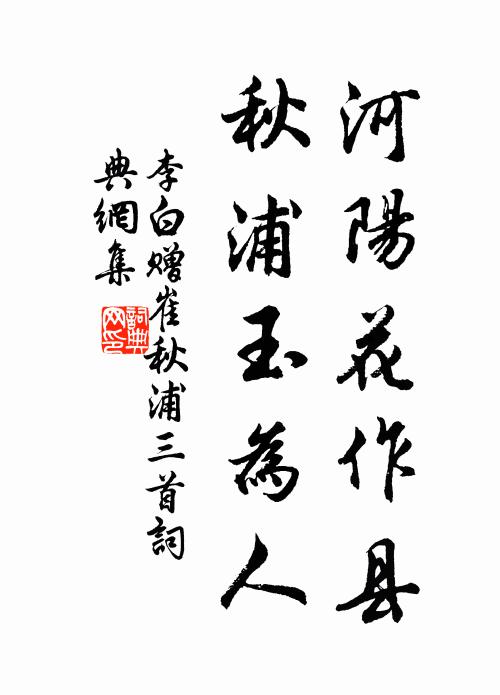 河陽花作县
秋浦玉為人
李白赠崔秋浦三首詞
典網集
詞典网印